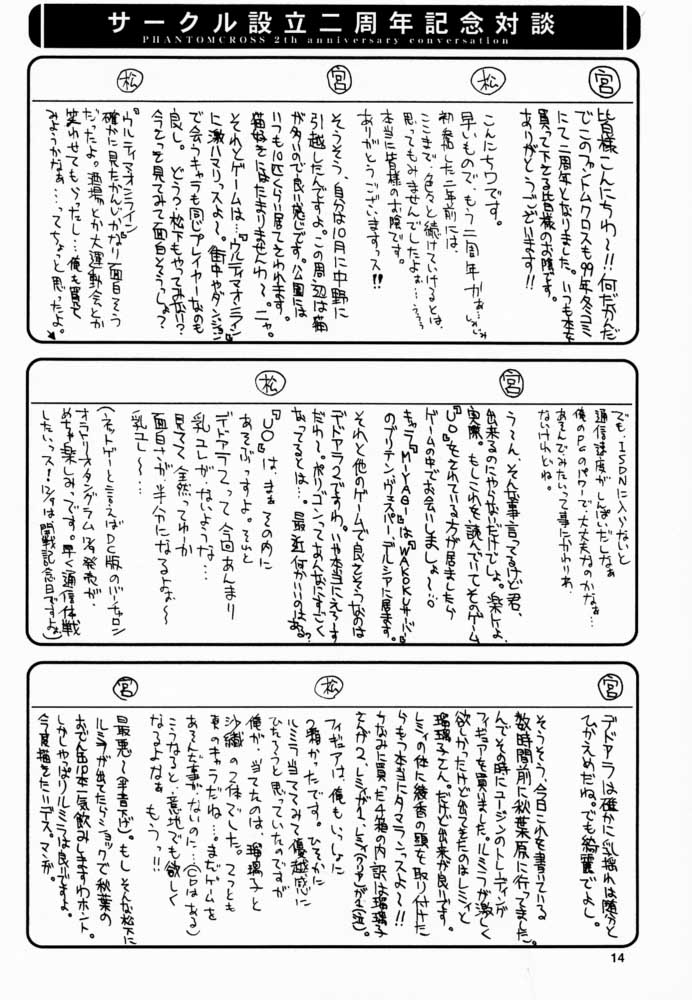 サークル設立二周年記念対談
PHANTOMCROSS 2th anniversary conversation
宮
皆様こんにちわ~!!何だかんだ
でこのファントムクロスも99年冬コミ
にて二周年となりました。いつも本を
買って下さる皆様のお陰です。
ありがとうございます!!
松
こんにちワです。
早いもので、もう二周年かぁ…しみじみ
初参加した二年前には、
ここまで色々と続けていけるとは、
思ってもみませんでしたよぉ…うぅぅ
本当に皆様のお陰です。
ありがとうございますっス!!
宮
そうそう、自分は10月に中野に
引越したんですよ。この周辺は猫
が多いので良い感じです。公園には
いつも10匹くらい居てそわれます。
猫好きにはたまりませんわ~。ニャ。
それとゲームは…『ウルティマオンライン』
に激ハマリっスよ~。街中やダンジョン
で会うキャラも同じプレイヤーなのも
良し。どう?松下もやってみない?
今そっと見てみて面白そうっしょ?
松
『ウルティマオンライン』
確かに見たかんじかなり面白そう
だったよ。酒場とか大運動会とか
笑わせてもらったし…俺も買って
みようかなぁ…ってちょっと思ったよ。
でも、ISDNに入らないと
通信速度がしんぱいだしなぁ
俺のPCのパワーで大丈夫なのかなぁ…
あそんでみたいって事にかわりわ、
ないけれどね。
宮
う~ん、そんな事言ってるけど君、
出来るのにやらないだけでしょ。楽しいよ、
実際。もしこれを読んでいてそのゲーム
『UO』をされている方が居ましたら
ゲームの中でお会いしましょ~!:○
キャラ『MIYABI』は『WAKOKU』サーバー
のブリテン、ヴェスパー、デルシアに居ます。
それと他のゲームで良さそうなのは
デドアラ2ですわ。いや本当にえろーす
だわ~。ポリゴンってあんなにすごく
なってるとは…。最近何かいいのはある?
松
『UO』は、まぁその内に
あそぶっすよ。それと
デドアラ2って今回あんまり
乳ユレが、ないような…
見てて全然ってゆーか
面白さが、半分になるよね~
乳ユレ~…。
(ネットゲーと言えばDC版のバーチャロン
オラトリオタングラム12/9発売が、
めちゃ楽しみっです。早く通信体戦
したいっス!12/9は開戦記念日ですよね)
宮
デドアラは確かに乳揺れは随分と
ひかえめだね。でも綺麗でよし。
そうそう、今日これを書いている
数時間前に秋葉原に行ってました。
んでその時にユージンのトレーディング
フィギュアを買いました。ルミラが激しく
欲しかったけど出てきたのはレミィと
瑠璃子さん。だけど出来が良いです。
レミィの体に綾香の頭を取り付けた
らもう本当にタマランっスよ~!!
ちなみに買った4箱の内訳は瑠璃子
さんが2、レミィが1、レミィ(クリア)が1(泣)。
松
フィギュアは、俺もいっしょに
2箱かったです。ひそかに
ルミラ当ててみて優越感に
ひたろうと思っていたのですが
俺が、当てたのは、瑠璃子と
沙織の2体でした。2つとも
東のキャラだね…まだゲームを
あそんだ事がないのに…(CDはある)
こうなると、意地でも欲しく
なるよなぁ もうっ!!
宮
最悪~(半音下げ)。もしそんな松下に
ルミラが出てたらショックで秋葉の
おでん缶10本一気飲みしますわホント。
しかしやっぱりルミラは良いですよ。
今度描きたいデス。マジが。
14